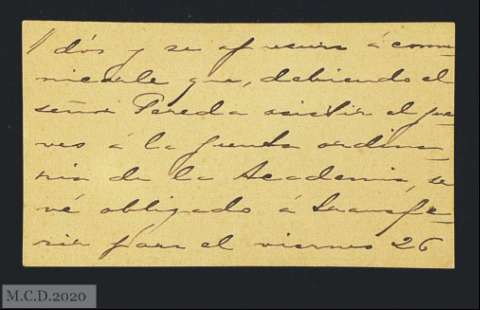 dós y se apresura á comu-
nicarle que, debiendo el
señor Pereda asistir el jue-
ves á la Junta ordina-
ria de la Academia, se
vé obligado á transfe-
rir para el viernes 26
M.C.D.2020